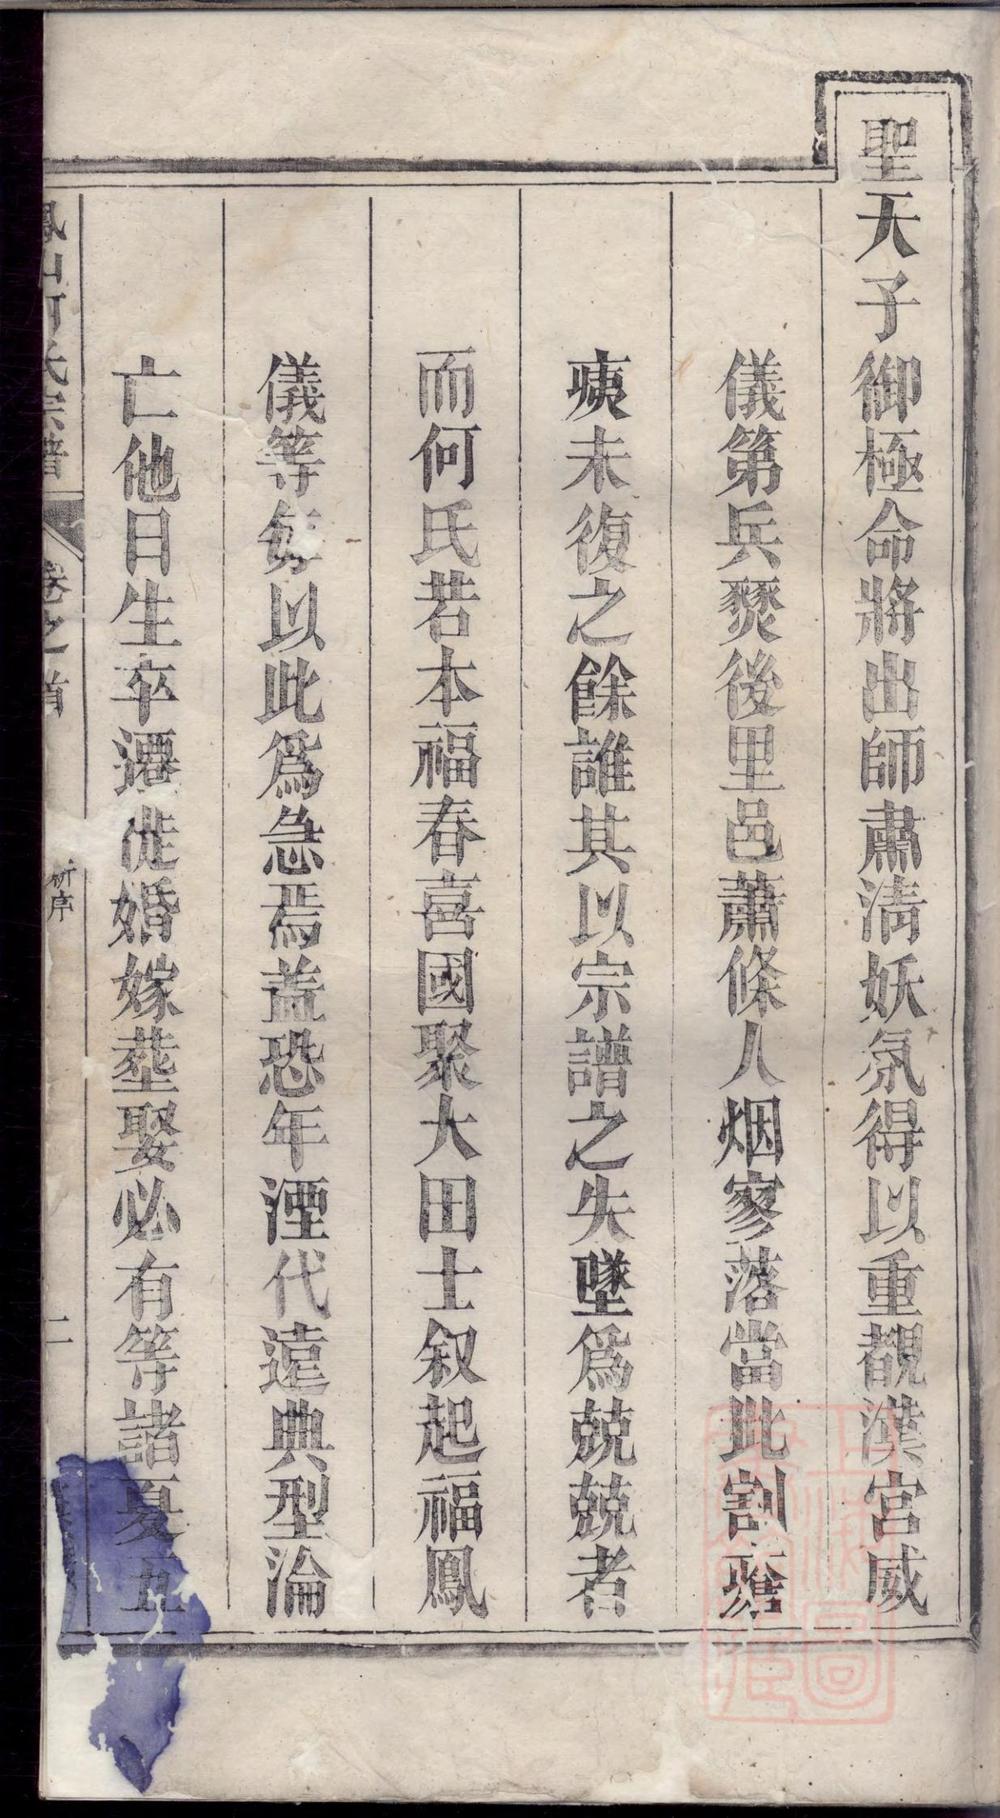 聖天子御極命將出師肅淸妖氛得以重覩漢宮威
儀第兵燹後里邑蕭條人烟寥落當此割
痍未復之餘誰其以宗譜之失墜爲兢兢者
而何氏若本福春喜國聚大田士叙起福鳳
儀等每以此爲急焉盖恐年湮代遠典型淪
亡他日生卒遷徙婚嫁塟娶必有等諸夏五
鳳山何氏宗譜 卷之首 新序 二